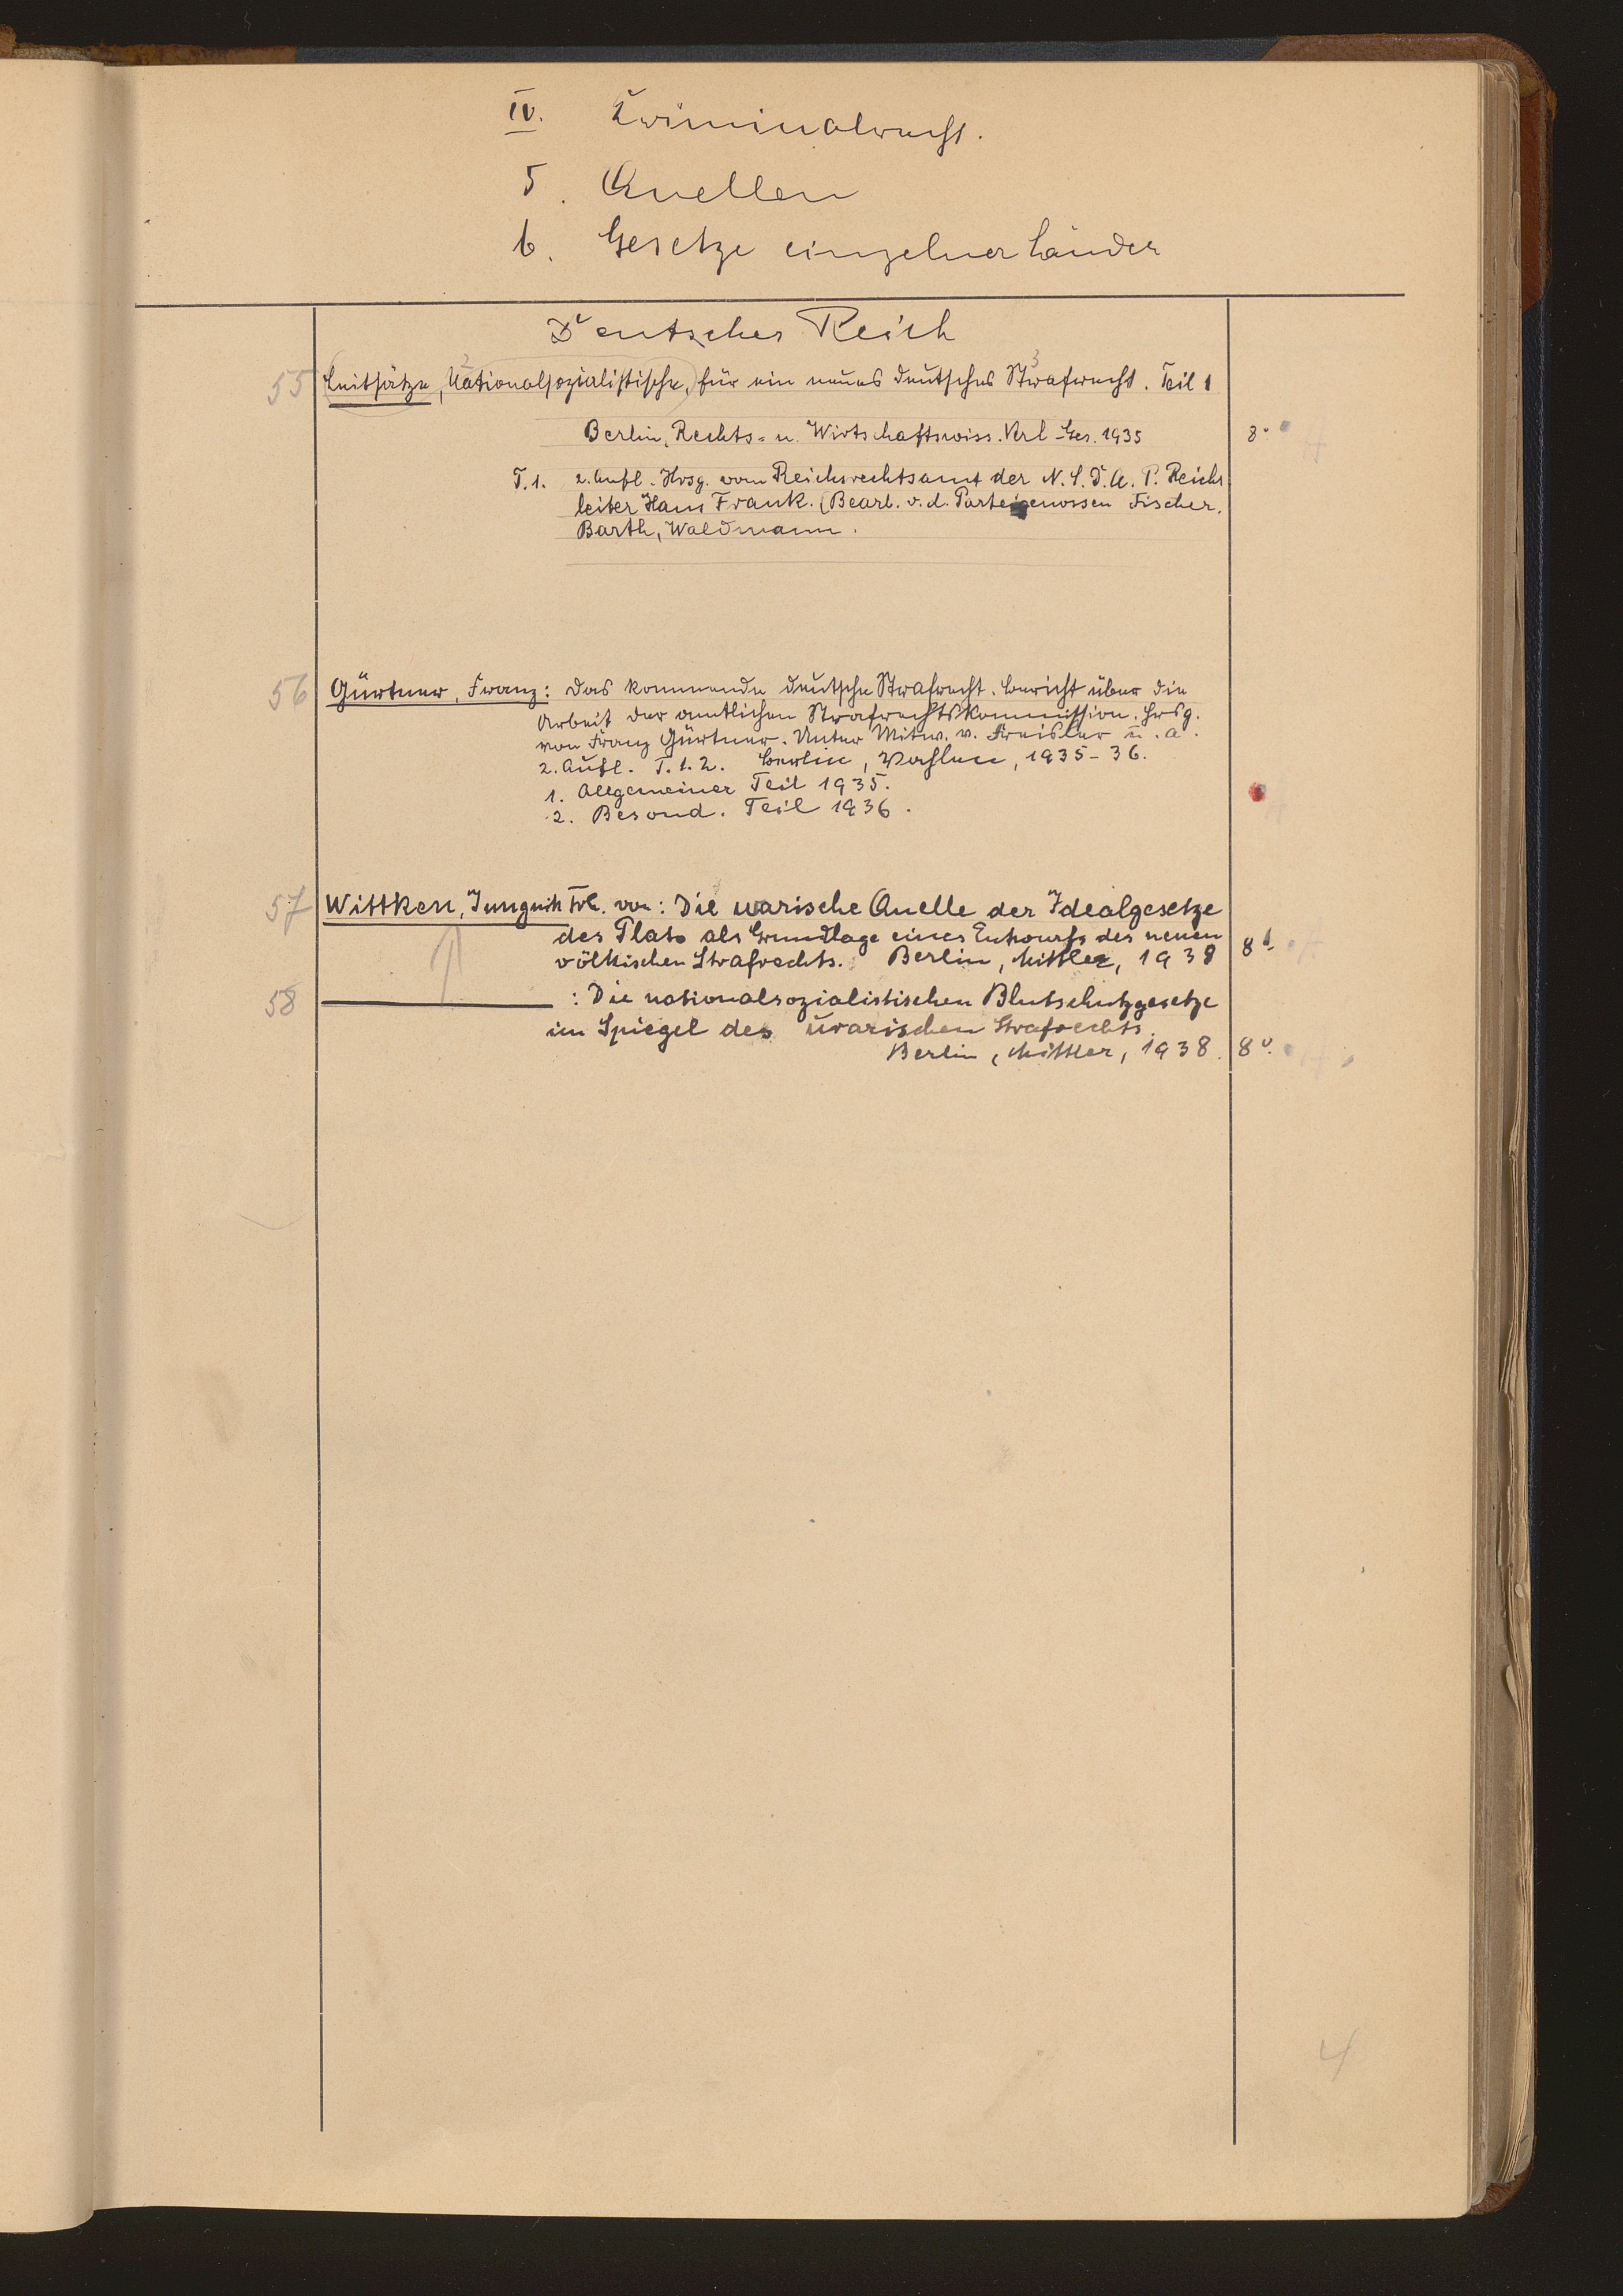 IV. Kriminalrecht.
5. Quellen
b. Gesetze einzelner Länder
Deutsches Reich
55 Leitsätze, Nationalsozialistische, für ein neues deutsches Strafrecht. Teil 1
Berlin, Rechts- u. Wirtschaftswiss. Verl-Ges. 1935 8°
T.1. 2. Aufl. Hrsg. vom Reichsrechtsamt der N.S.D.A.P. Reichs
leiter Hans Frank. (Bearb. v. d. Parteigenossen Fischer,
Barth, Waldmann.
56 Gürtner, Franz: Das kommende deutsche Strafrecht. Bericht über die
Arbeit der amtlichen Strafrechtskommission. Hrsg.
von Franz Gürtner. Unter Mitw. v. Freisler u. a.
2. Aufl. T.1.2. Berlin, Vahlen, 1935-36.
1. Allgemeiner Teil 1935.
2. Besond. Teil 1936.
57 Wittken, Frh. von: Die urarische Quelle der Idealgesetze
des Plato als Grundlage eines Entwurfs des neuen
völkischen Strafrechts. Berlin, Mittler, 1938 8°
58 : Die nationalsozialistischen Blutschutzgesetze
im Spiegel des urarischen Strafrechts.
Berlin, Mittler, 1938. 8°.
4